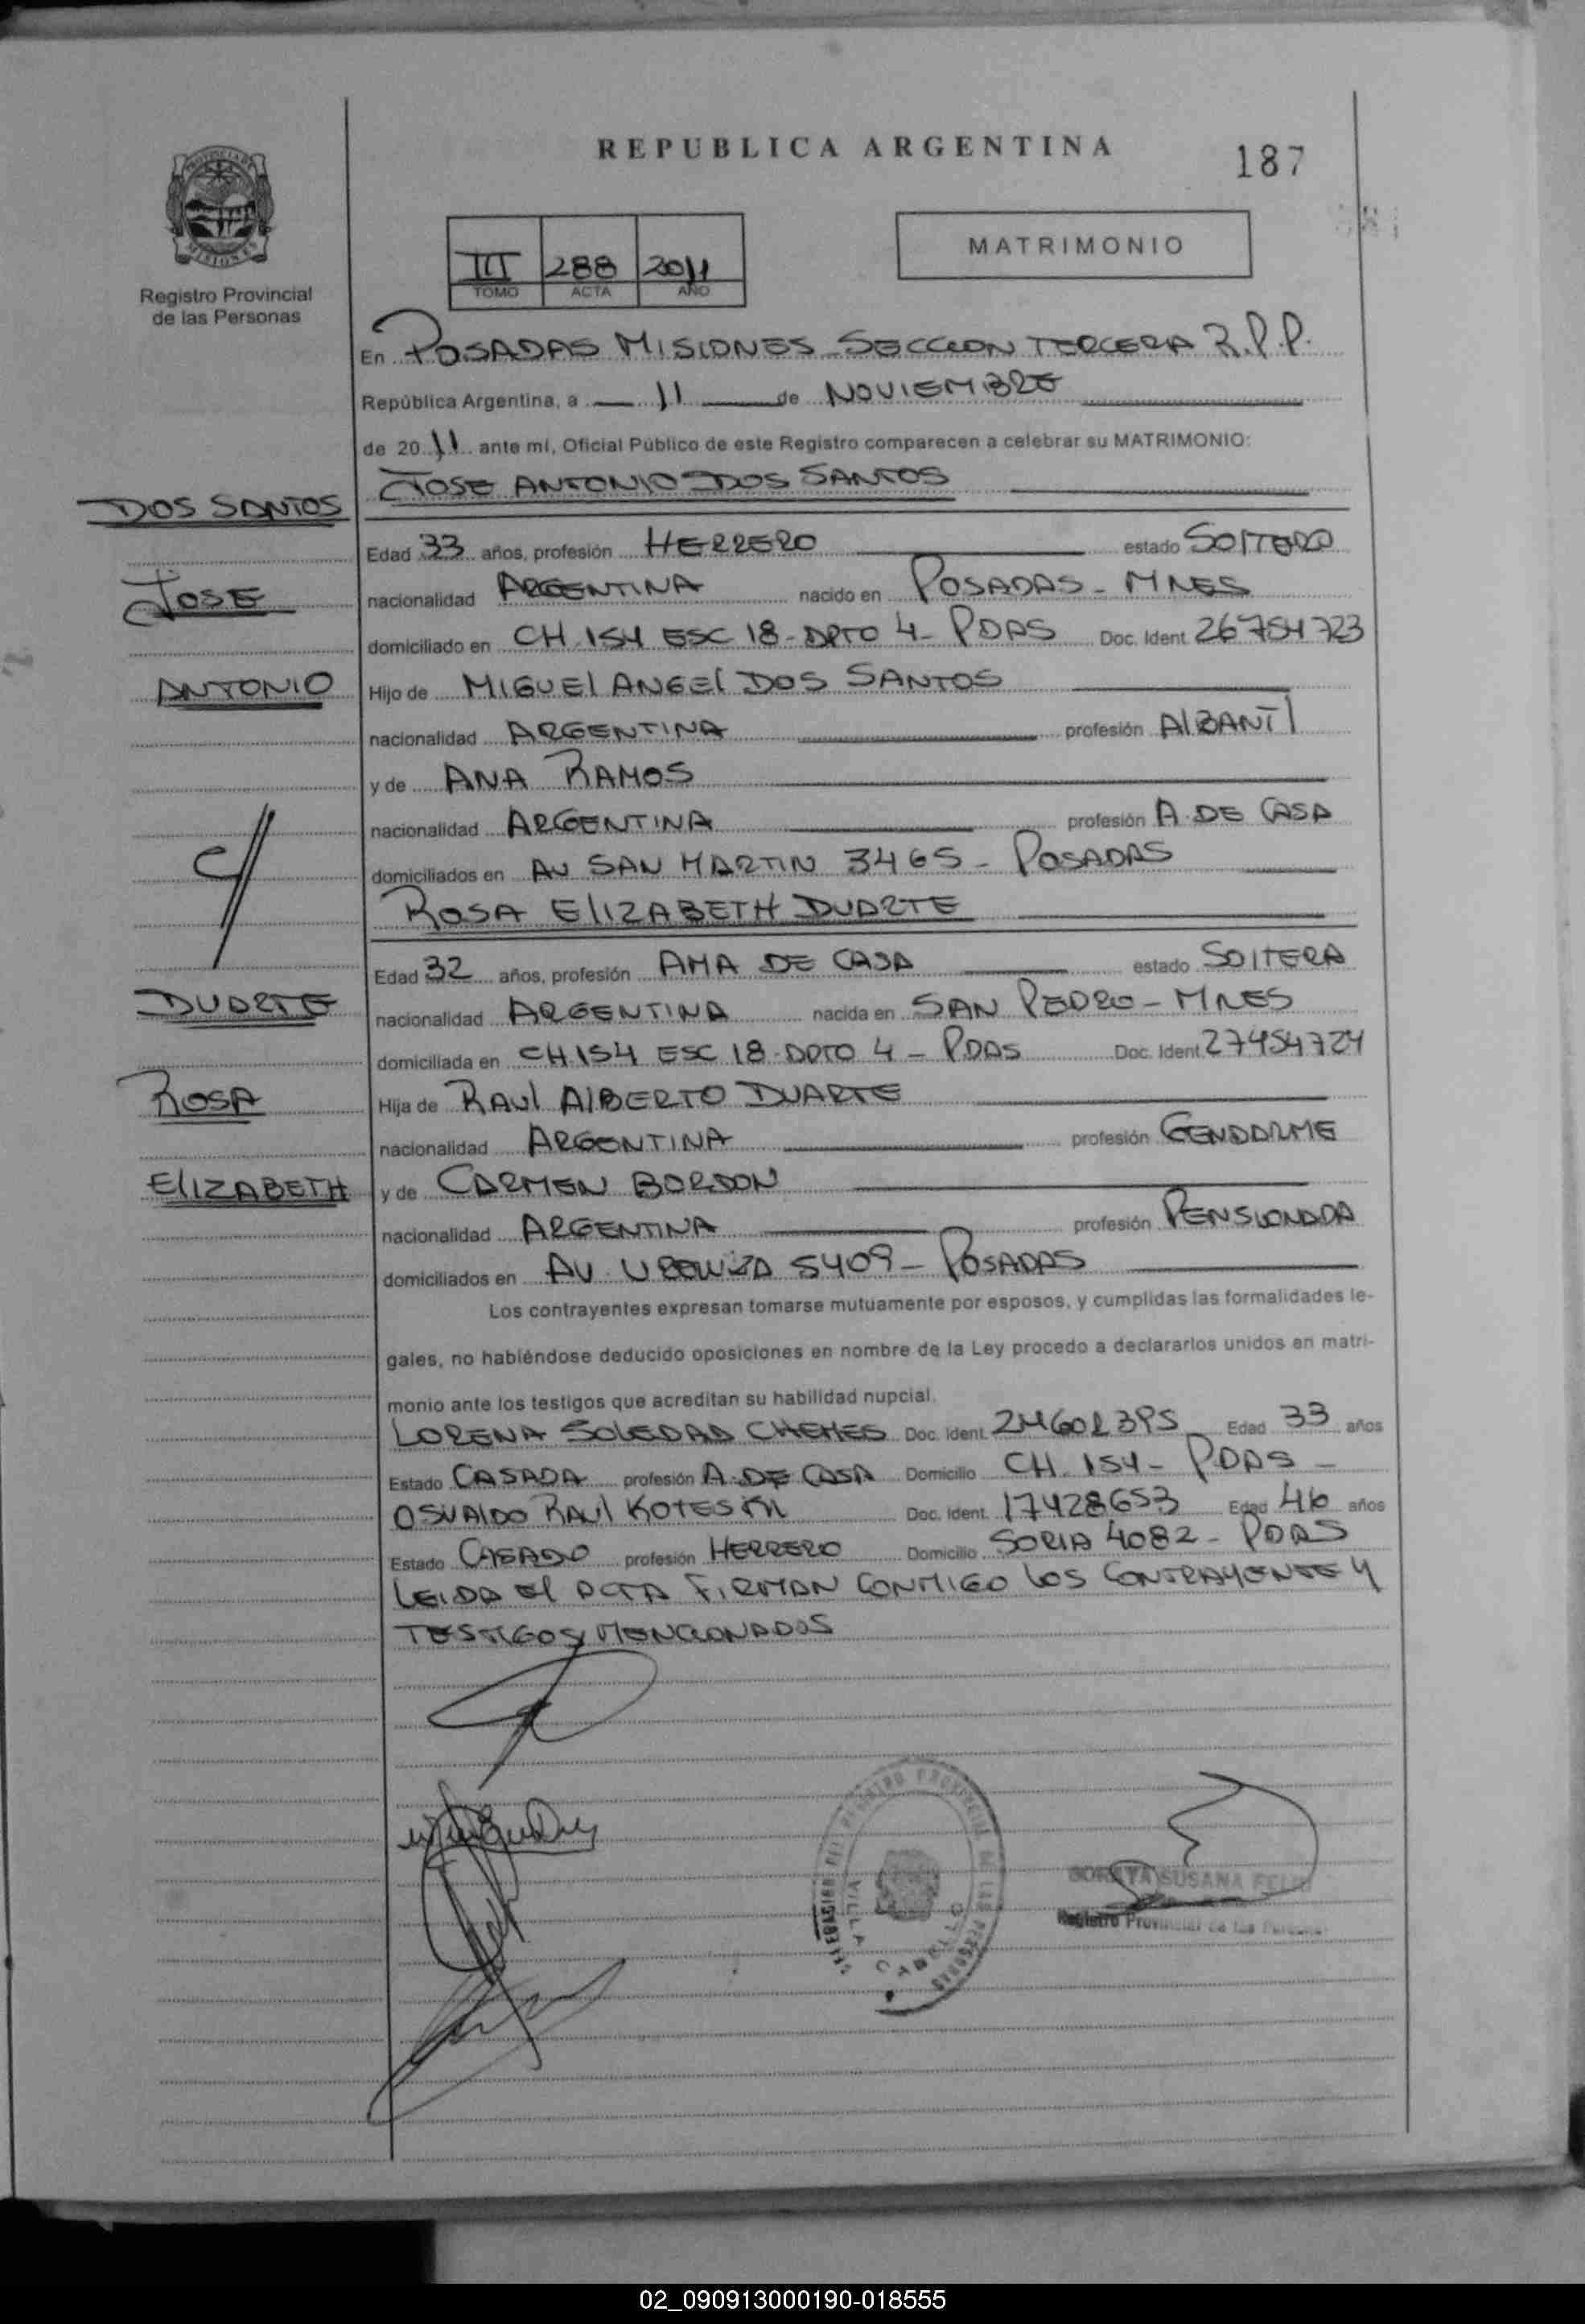 REPUBLICA ARGENTINA
187
MATRIMONIO
Registro Provincial
de las Personas
III 288 2011
TOMO ACTA AÑO
En POSADAS MISIONES SECCION TERCERA R.P.P.
República Argentina, a 11 de NOVIEMBRE
de 2011 ante mí, Oficial Público de este Registro comparecen a celebrar su MATRIMONIO:
JOSE ANTONIO DOS SANTOS
DOS SANTOS
Edad 33 años, profesión HERRERO estado SOLTERO
JOSE
nacionalidad ARGENTINA nacido en POSADAS - MNES
domiciliado en CH 154 ESC 18 - DPTO 4 - PDAS Doc. Ident. 26754723
ANTONIO
Hijo de MIGUEL ANGEL DOS SANTOS
nacionalidad ARGENTINA profesión ALBAÑIL
y de ANA RAMOS
nacionalidad ARGENTINA profesión A. DE CASA
c/
domiciliados en AV SAN MARTIN 3465 - POSADAS
ROSA ELIZABETH DUARTE
Edad 32 años, profesión AMA DE CASA estado SOLTERA
DUARTE
nacionalidad ARGENTINA nacida en SAN PEDRO - MNES
domiciliada en CH.154 ESC 18 - DPTO 4 - PDAS Doc. Ident. 27454724
ROSA
Hija de RAUL ALBERTO DUARTE
nacionalidad ARGENTINA profesión GENDARME
ELIZABETH
y de CARMEN BORDON
nacionalidad ARGENTINA profesión PENSIONADA
domiciliados en AV. URQUIZA 5409 - POSADAS
Los contrayentes expresan tomarse mutuamente por esposos, y cumplidas las formalidades le-
gales, no habiéndose deducido oposiciones en nombre de la Ley procedo a declararlos unidos en matri-
monio ante los testigos que acreditan su habilidad nupcial.
LORENA SOLEDAD Doc. Ident. Edad 33 años
Estado CASADA profesión A. DE CASA Domicilio CH. 154 - PDAS -
OSVALDO RAUL Doc. Ident. 17428653 Edad 46 años
Estado CASADO profesión HERRERO Domicilio SORIA 4082 - PDAS
LEIDA EL ACTA FIRMAN CONMIGO LOS CONTRAYENTE Y
TESTIGOS MENCIONADOS
REGISTRO PROVINCIAL DE LAS PERSONAS
VILLA CABELLO
SORAYA SUSANA
Registro Provincial de las Personas
02_090913000190-018555